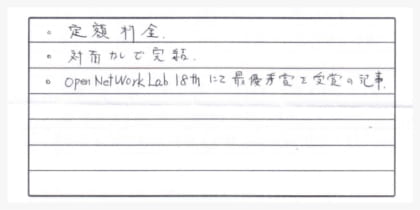 。定額料金.
。対面なしで完結.
。Open NetWork Lab 18thにて最優秀賞を受賞の記事.